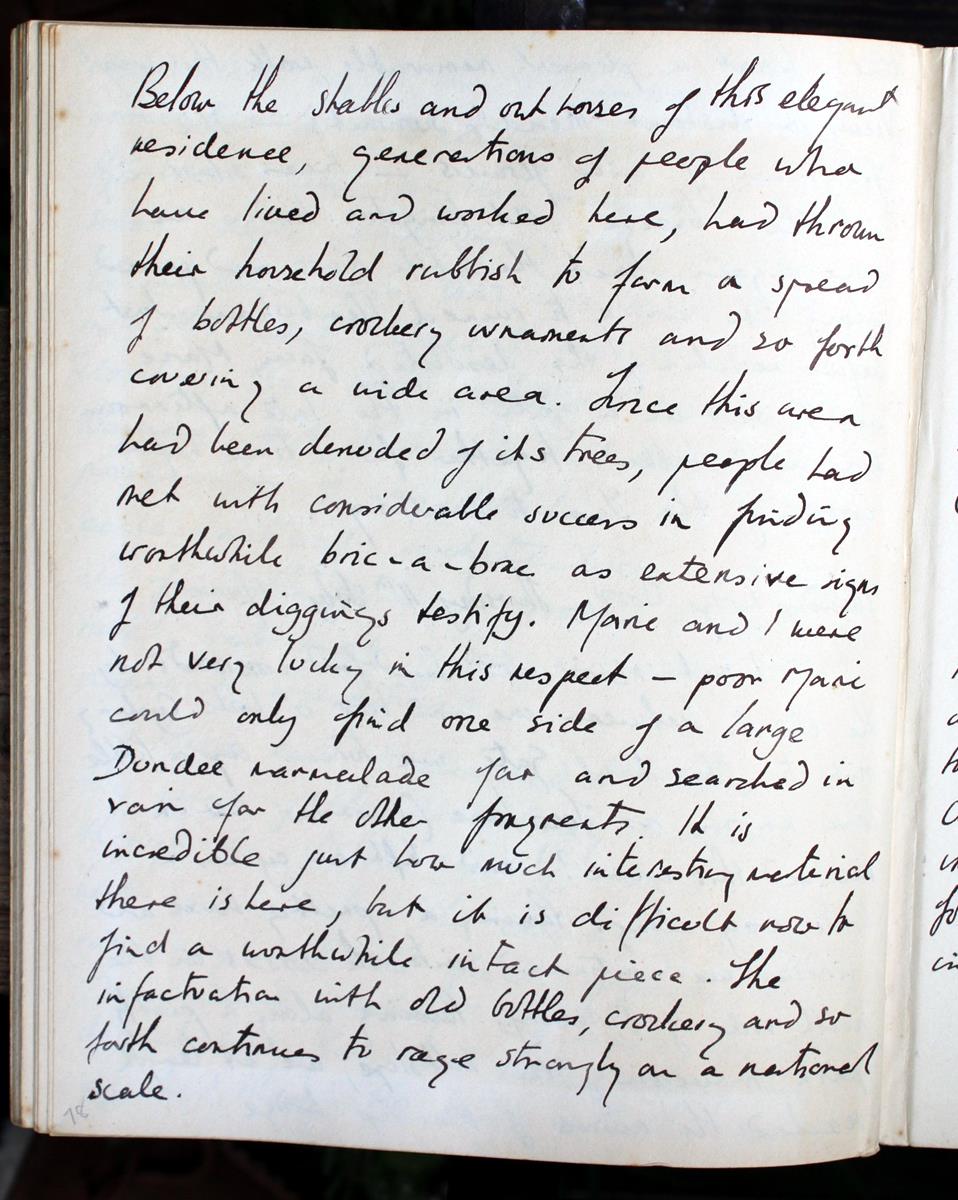 Below the stables and outhouses of this elegant
residence, generations of people who
have lived and worked here, had thrown
their household rubbish to form a spread
of bottles, crockery ornaments and so forth
covering a wide area. Since this area
had been denuded of its trees, people had
met with considerable success in finding
worthwhile bric-a-brac as extensive signs
of their diggings testify. Marie and I were
not very lucky in this respect – poor Marie
could only find one side of a large
Dundee marmalade jar and searched in
vain for the other fragments. It is
incredible just how much interesting material
there is here, but it is difficult now to
find a worthwhile intact piece. The
infactuation with old bottles, crockery and so
forth continues to rage strongly on a national
scale.
78